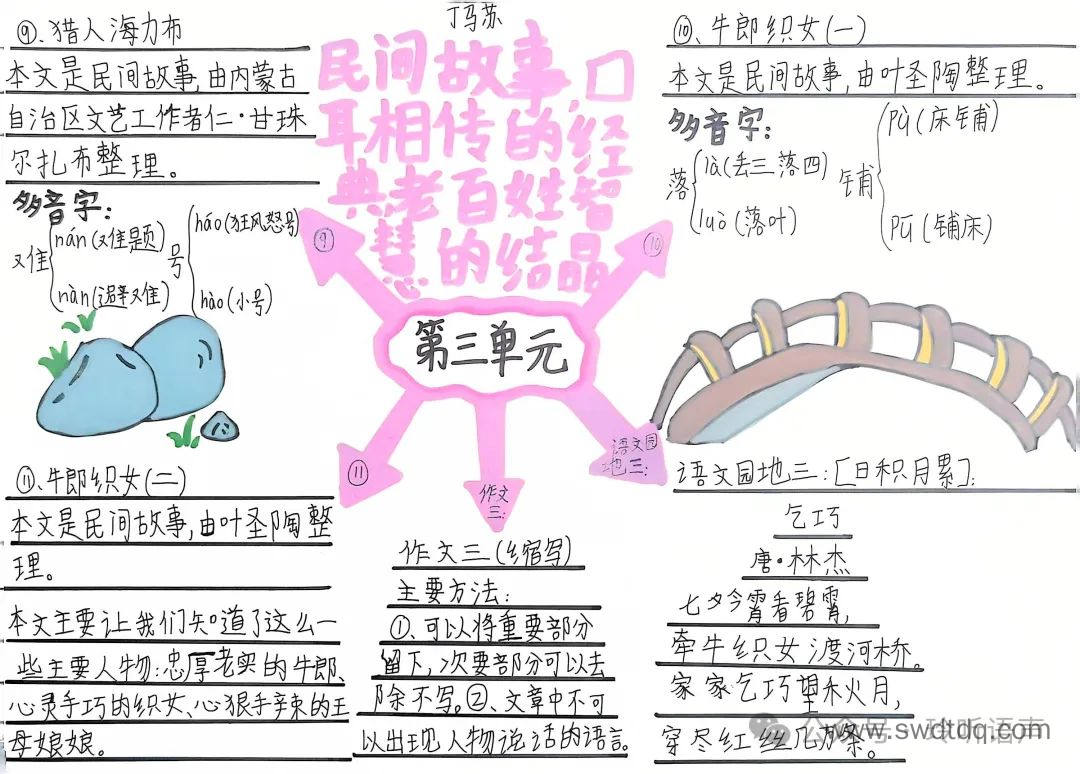 丁马苏
民间故事,口
耳相传的经
典老百姓智
慧的结晶
第三单元
⑨
⑩
⑪
作文
三:
语文园
地三:
⑨、猎人海力布
本文是民间故事,由内蒙古
自治区文艺工作者仁·甘珠
尔扎布整理。
多音字:
难 nán(难题) nàn(避难)
号 háo(狂风怒号) hào(小号)
⑩、牛郎织女(一)
本文是民间故事,由叶圣陶整理。
多音字:
落 là(丢三落四) luò(落叶)
铺 pù(床铺) pū(铺床)
⑪、牛郎织女(二)
本文是民间故事,由叶圣陶整
理。
本文主要让我们知道了这么一
些主要人物:忠厚老实的牛郎、
心灵手巧的织女、心狠手辣的王
母娘娘。
作文三(缩写)
主要方法:
①、可以将重要部分
留下,次要部分可以去
除不写。②、文章中不可
以出现人物说话的语言。
语文园地三:[日积月累]:
乞巧
唐·林杰
七夕今霄看碧霄,
牵牛织女渡河桥。
家家乞巧望秋月,
穿尽红丝几万条。
公众号
www.swdtdq.com